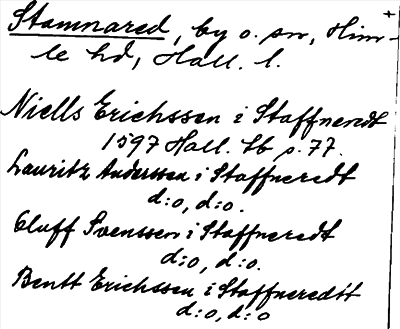 Stamnared, by o. sn, Him-
le hd, Hall. l.
Niells Erichssen i Staffneredt
1597 Hall. tb s. 77.
Lauritz Anderssen i Staffneredt
d:o, d:o.
Oluff Svenssen i Staffneredt
d:o, d:o.
Bentt Erichssen i Staffneredtt
d:o, d:o